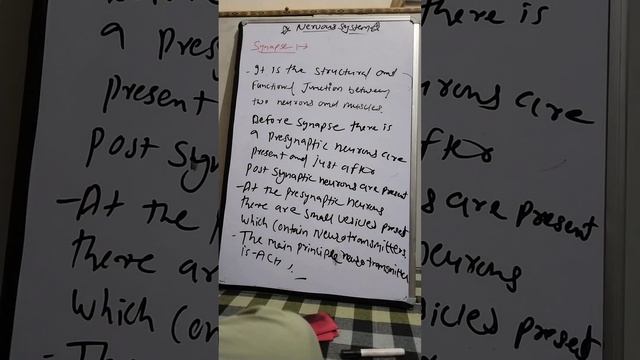 Nervous System
Synapse :→
- It is the structural and
Functional Junction between
two neurons and muscles.
Before synapse there is
a presynaptic neurons are
present and just after
post synaptic neurons are present
- At the presynaptic neurons
there are small vesicles present
which contain Neurotransmitters
- The main principle neurotransmitter
is - ACh